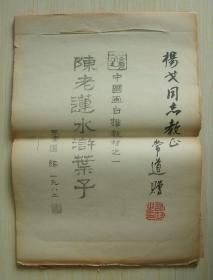 楊戈同志教正
常道贈
中國画白描教材之一
陳老蓮水滸葉子
一九八二